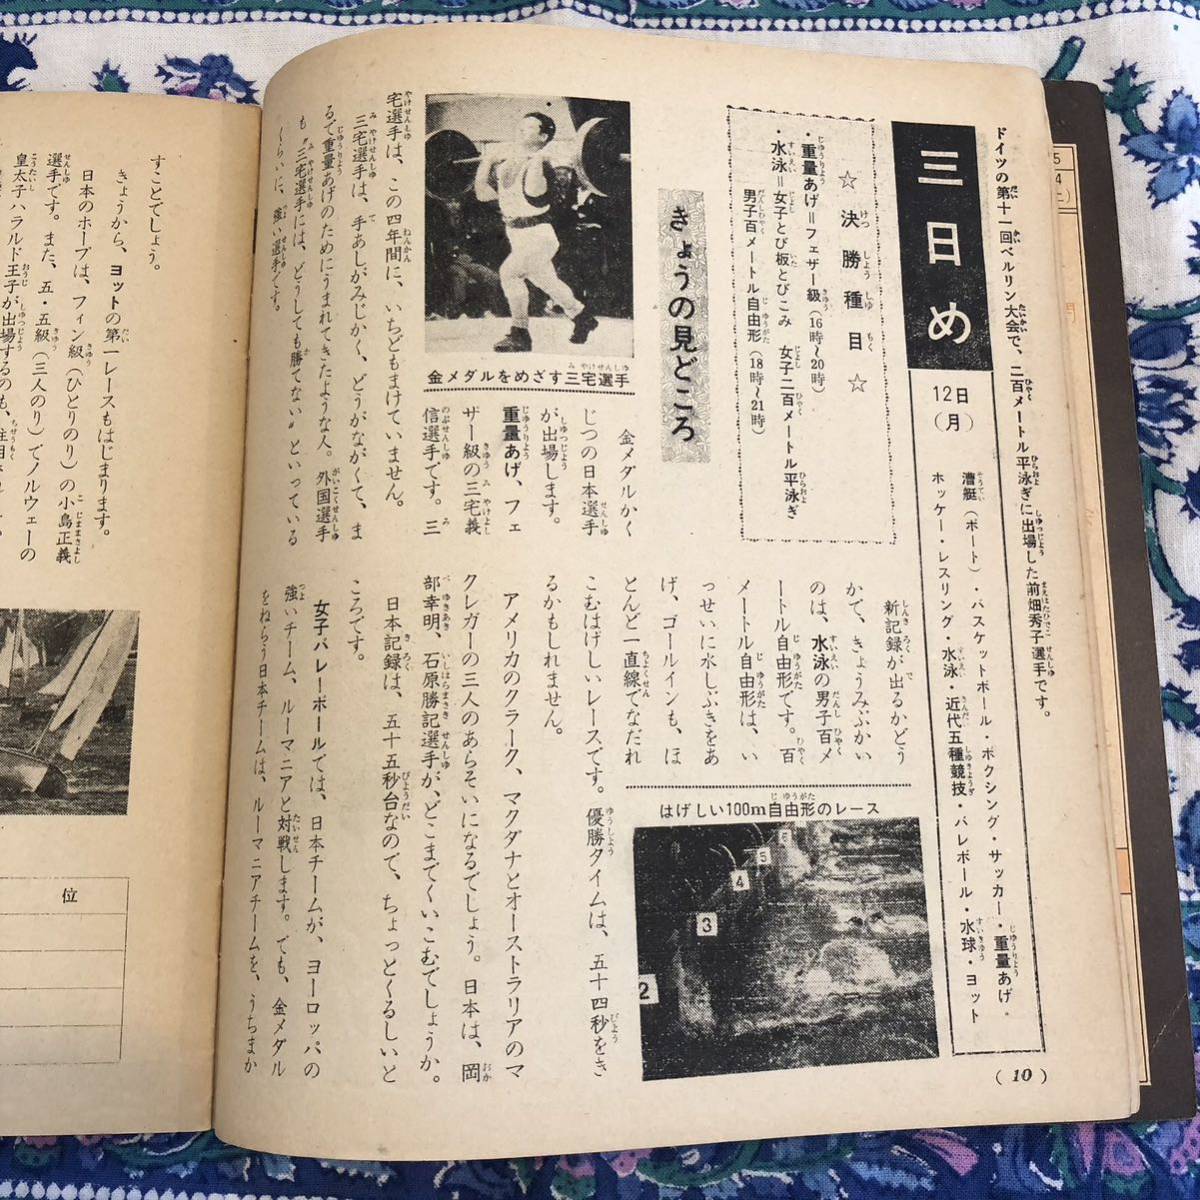 ドイツの第十一回ベルリン大会で、二百メートル平泳ぎに出場した前畑秀子選手です。
三日め
12日
(月)
漕艇(ボート)・バスケットボール・ボクシング・サッカー・重量あげ・
ホッケー・レスリング・水泳・近代五種競技・バレボール・水球・ヨット
☆決勝種目☆
・重量あげ=フェザー級(16時~20時)
・水泳=女子とび板とびこみ 女子二百メートル平泳ぎ
男子百メートル自由形(18時~21時)
きょうの見どころ
金メダルをめざす三宅選手
金メダルかく
じつの日本選手
が出場します。
重量あげ、フェ
ザー級の三宅義
信選手です。三
宅選手は、この四年間に、いちどもまけていません。
三宅選手は、手あしがみじかく、どうがながくて、ま
るで重量あげのためにうまれてきたような人。外国選手
も“三宅選手には、どうしても勝てない”といっている
くらいに、強い選手です。
新記録が出るかどう
かで、きょうみぶかい
のは、水泳の男子百メ
ートル自由形です。百
メートル自由形は、い
っせいに水しぶきをあ
げ、ゴールインも、ほ
とんど一直線でなだれ
こむはげしいレースです。優勝タイムは、五十四秒をき
るかもしれません。
アメリカのクラーク、マクダナとオーストラリアのマ
クレガーの三人のあらそいになるでしょう。日本は、岡
部幸明、石原勝記選手が、どこまでくいこむでしょうか。
日本記録は、五十五秒台なので、ちょっとくるしいと
ころです。
女子バレーボールでは、日本チームが、ヨーロッパの
強いチーム、ルーマニアと対戦します。でも、金メダル
をねらう日本チームは、ルーマニアチームを、うちまか
はげしい100m自由形のレース
2
3
4
5
6
(10)
すことでしょう。
きょうから、ヨットの第一レースもはじまります。
日本のホープは、フィン級(ひとりのり)の小島正義
選手です。また、五・五級(三人のり)でノルウェーの
皇太子ハラルド王子が出場するのも、注目され
位